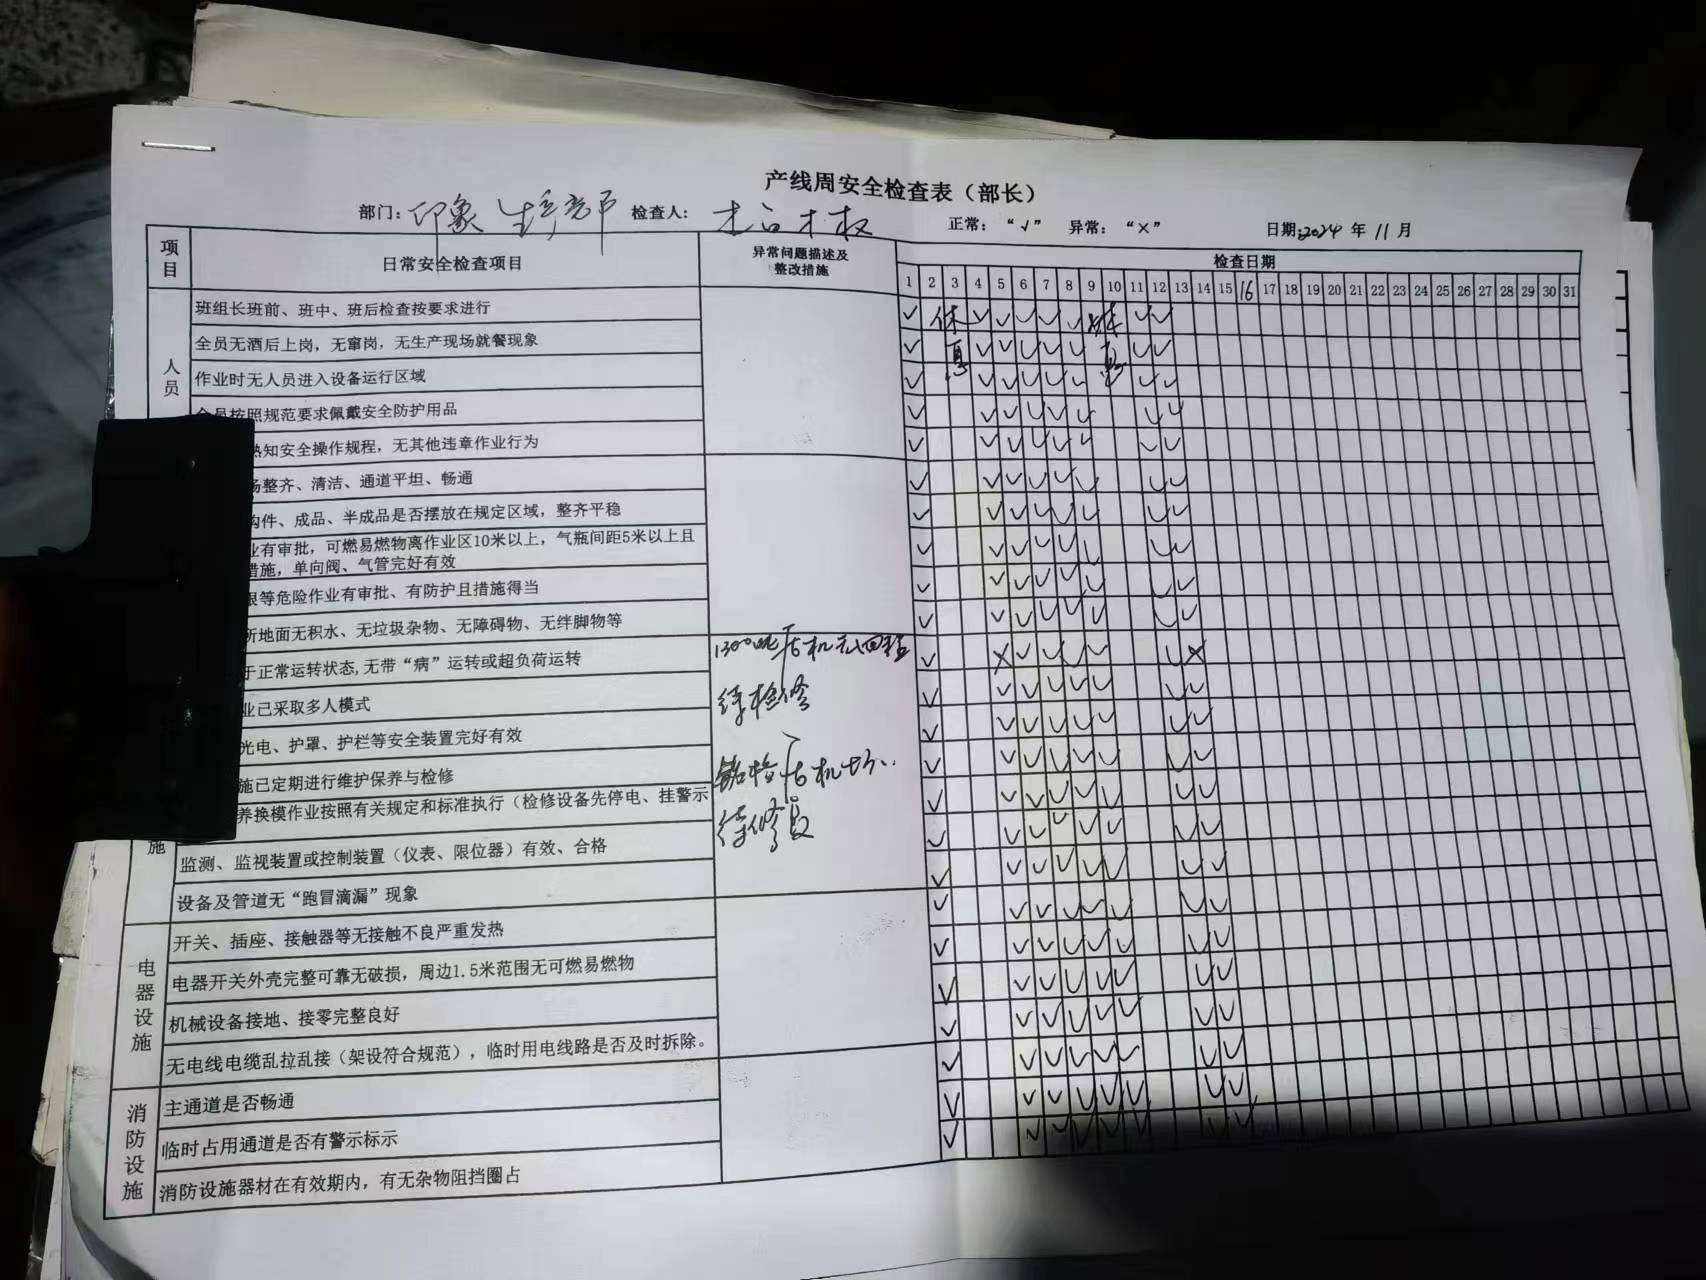 产线周安全检查表（部长）
部门：印象 检查人： 正常：“√” 异常：“×” 日期：2024 年 11 月
项目 日常安全检查项目 异常问题描述及整改措施 检查日期
1 2 3 4 5 6 7 8 9 10 11 12 13 14 15 16 17 18 19 20 21 22 23 24 25 26 27 28 29 30 31
人员
班组长班前、班中、班后检查按要求进行 休
全员无酒后上岗，无窜岗，无生产现场就餐现象 息
作业时无人员进入设备运行区域
员按照规范要求佩戴安全防护用品
熟知安全操作规程，无其他违章作业行为
场整齐、清洁、通道平坦、畅通
构件、成品、半成品是否摆放在规定区域，整齐平稳
业有审批，可燃易燃物离作业区10米以上，气瓶间距5米以上且
措施，单向阀、气管完好有效
限等危险作业有审批、有防护且措施得当
所地面无积水、无垃圾杂物、无障碍物、无绊脚物等
于正常运转状态,无带“病”运转或超负荷运转
业已采取多人模式
光电、护罩、护栏等安全装置完好有效
施已定期进行维护保养与检修
养换模作业按照有关规定和标准执行（检修设备先停电、挂警示
施
监测、监视装置或控制装置（仪表、限位器）有效、合格
设备及管道无“跑冒滴漏”现象
1300吨压机无回程
待检修
压机坏
待修复
电器设施
开关、插座、接触器等无接触不良严重发热
电器开关外壳完整可靠无破损，周边1.5米范围无可燃易燃物
机械设备接地、接零完整良好
无电线电缆乱拉乱接（架设符合规范），临时用电线路是否及时拆除。
消防设施
主通道是否畅通
临时占用通道是否有警示标示
消防设施器材在有效期内，有无杂物阻挡圈占